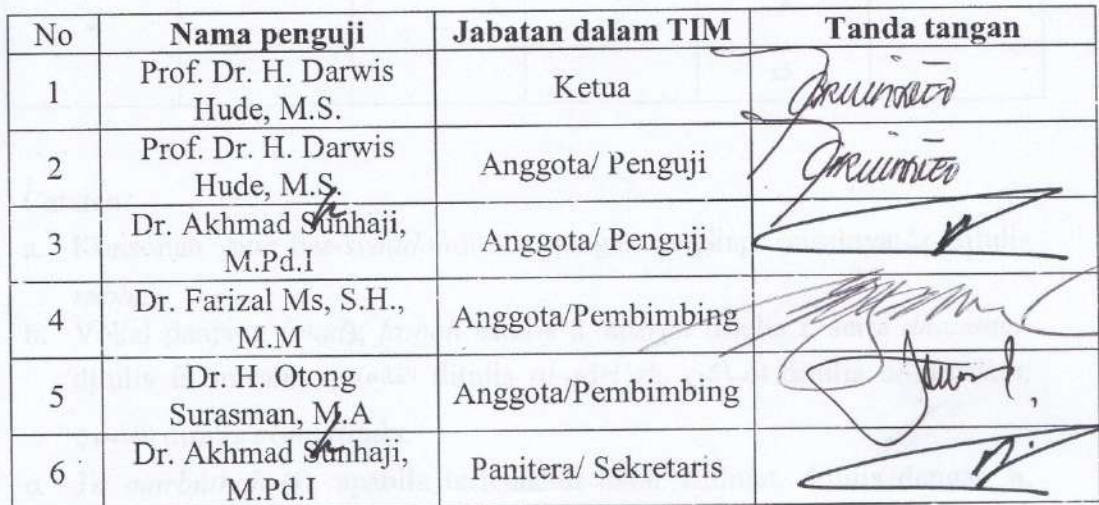 No Nama penguji Jabatan dalam TIM Tanda tangan
1 Prof. Dr. H. Darwis
Hude, M.S. Ketua
2 Prof. Dr. H. Darwis
Hude, M.S. Anggota/ Penguji
3 Dr. Akhmad Sunhaji,
M.Pd.i Anggota/ Penguji
4 Dr. Farizal Ms, S.H.,
M.M Anggota/Pembimbing
5 Dr. H. Otong
Surasman, M.A Anggota/Pembimbing
6 Dr. Akhmad Sunhaji,
M.Pd.I Panitera/ Sekretaris